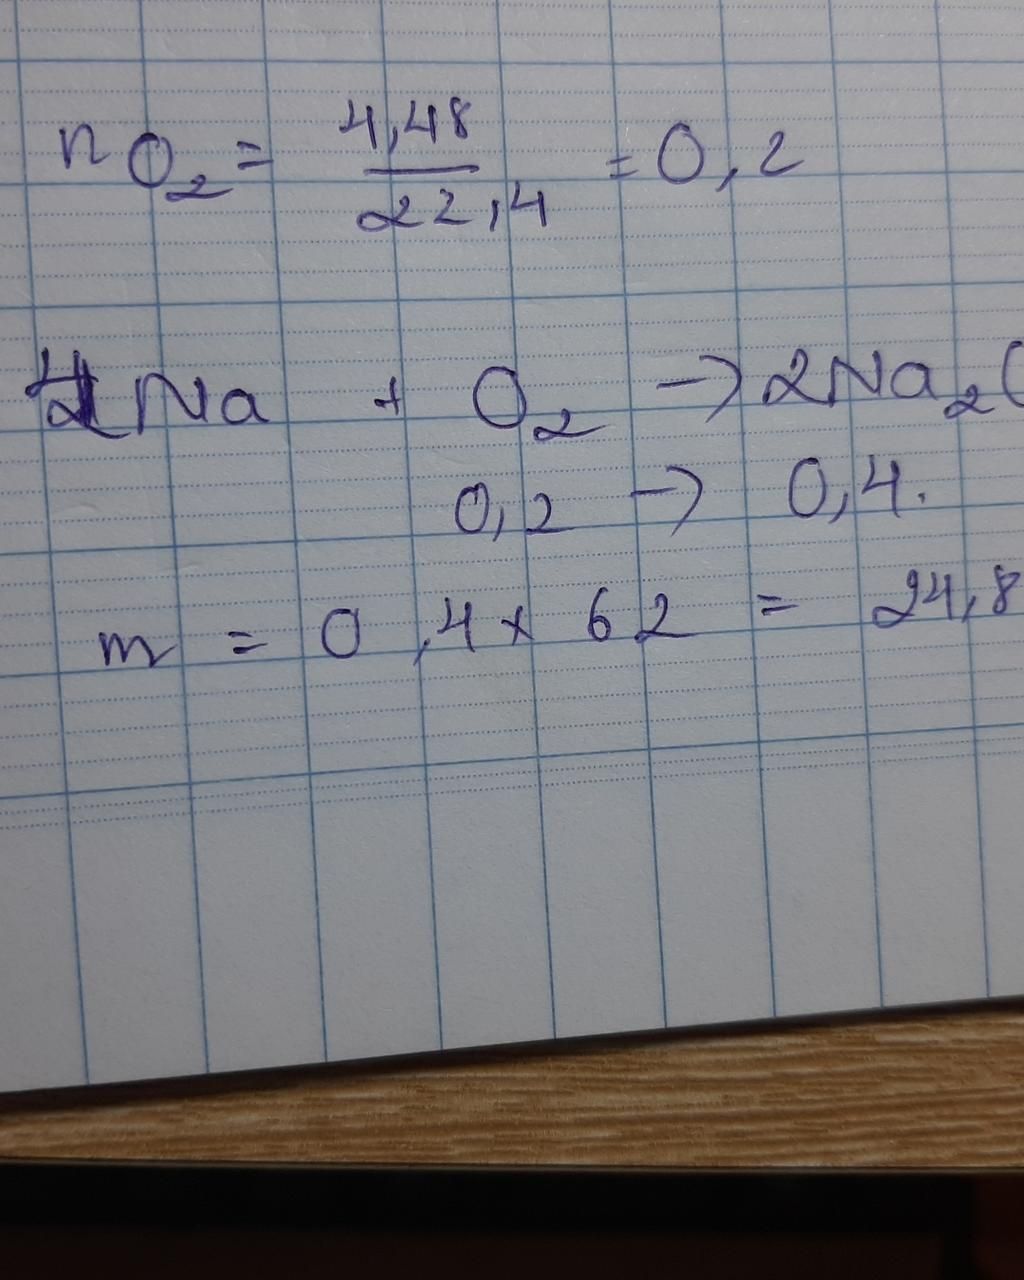 nO₂ = 4,48 / 22,4 = 0,2
4Na + O₂ → 2Na₂
0,2 → 0,4.
m = 0,4 x 62 = 24,8